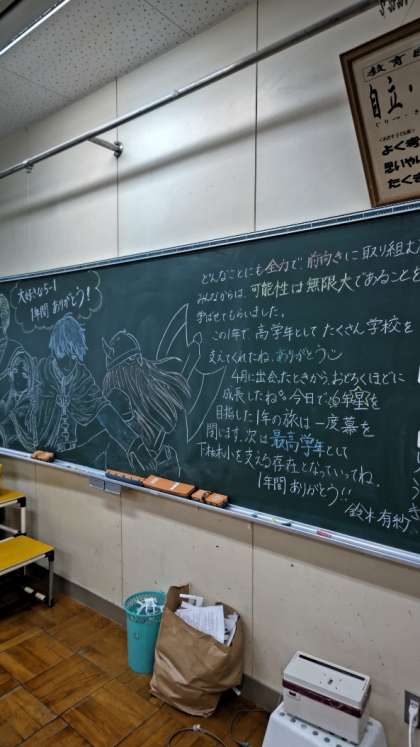 教育目
自立
よく考
思いやり
たくま
大好きな5-1
1年間 ありがとう!
どんなことにも全力で、前向きに取り組む
みんなからは、可能性は無限大であることを
学ばせてもらいました。
この1年で、高学年として たくさん学校を
支えてくれたね。ありがとう
4月に出会ったときから、おどろくほどに
成長したね。今日で
目指した1年の旅は一度幕を
閉じます。次は最高学年として
下柚木小を支える存在となっていってね。
1年間 ありがとう!!
鈴木有紗